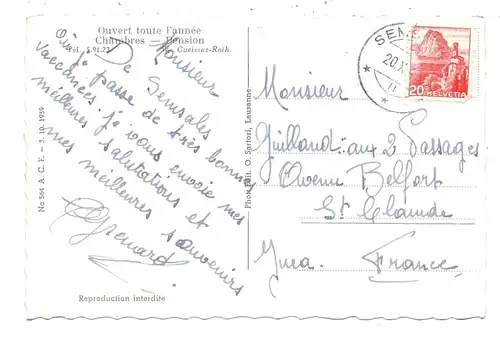 Ouvert toute l'année
Chambres — Pension
Tél. 5.91.22 Gueissaz-Roth.
Monsieur
De Semsales
Où je passe de très bonnes
vacances. je vous envoie mes
meilleures salutations et
mes meilleures souvenirs
No 564 A. C. F. — 3. 10. 1939
Reproduction interdite
Phot. édit. O. Sartori, Lausanne
SEMS
20.X
II
20
HELVETIA
Monsieur
Guilland: aux 2 Passages
Avenue Belfort
St Claude
Jura. France